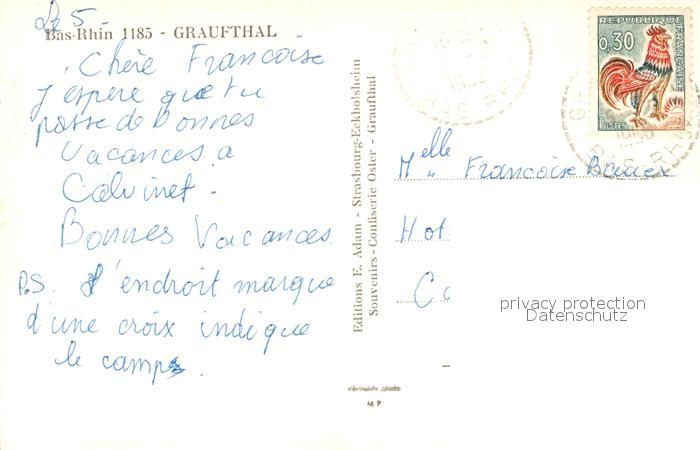 Le 5.
Bas-Rhin 1185 - GRAUFTHAL
Chère Francoise
J'espère que tu
passe de bonnes
vacances a
Calvinet.
Bonnes Vacances.
P.S. L'endroit marque
d'une croix indique
le camps.
Editions E. Adam - Strasbourg-Eckbolsheim
Souvenirs - Confiserie Oster - Graufthal
véritable photo
M P
REPUBLIQUE FRANÇAISE
0,30
POSTES
BAS-RHIN
BAS-RHIN
Melle Francoise
Hot
Ca
privacy protection
Datenschutz